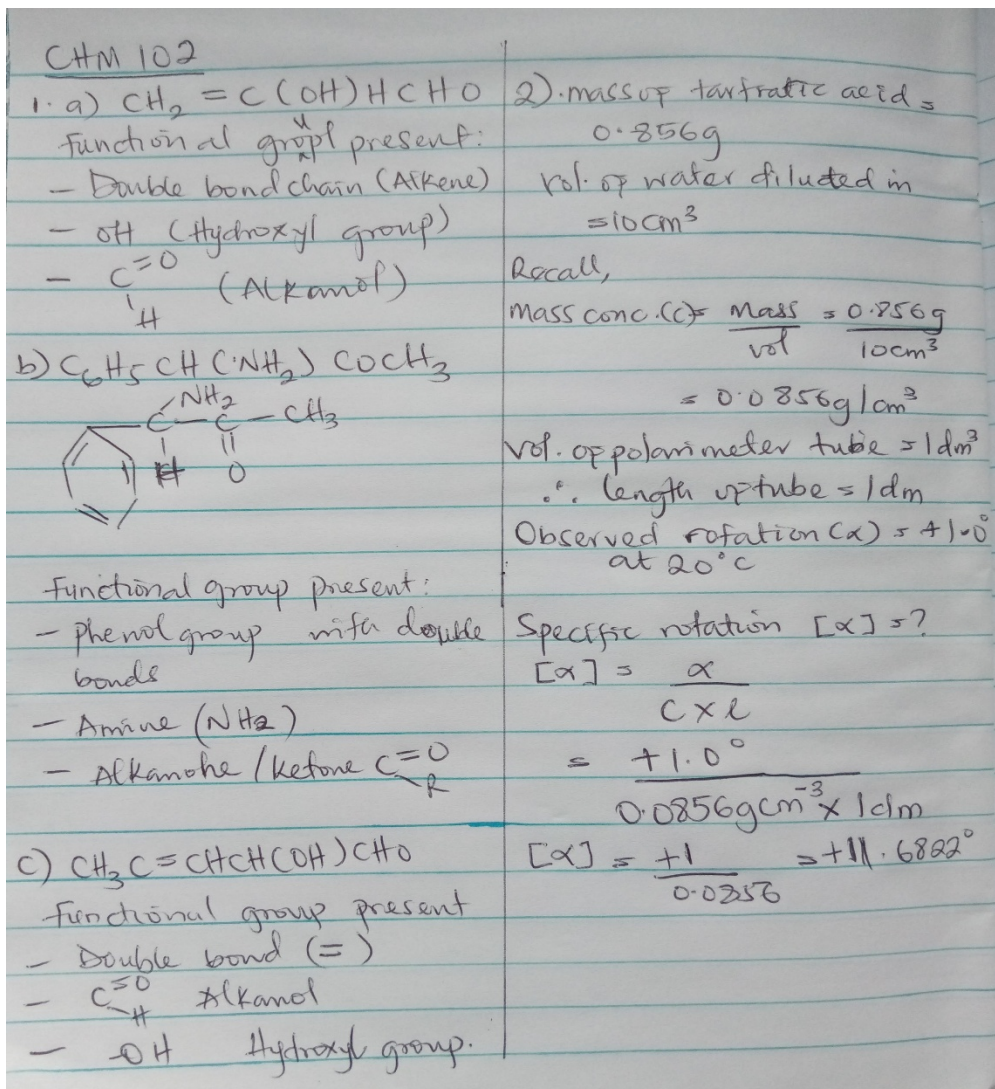 CHM 102
1. a) CH₂ = C(OH)HCHO
Functional group present:
- Double bond chain (Alkene)
- OH (Hydroxyl group)
- C=O (Alkanol)
H
b) C₆H₅CH(NH₂)COCH₃
NH₂
C - C - CH₃
H O
Functional group present:
- Phenol group with double
bonds
- Amine (NH₂)
- Alkanone / Ketone C=O
R
c) CH₃C=CHCH(OH)CHO
Functional group present
- Double bond (=)
- C=O Alkanol
H
- -OH Hydroxyl group.
2). mass of tartratic acid =
0.856g
vol. of water diluted in
=10cm³
Recall,
Mass conc.(c)= Mass = 0.856g
vol 10cm³
= 0.0856g/cm³
Vol. of polarimeter tube = 1dm³
∴ length of tube = 1dm
Observed rotation (α) = +1.0°
at 20°C
Specific rotation [α] =?
[α] = α
C x l
= +1.0°
0.0856gcm⁻³ x 1dm
[α] = +1 = +11.6822°
0.0856